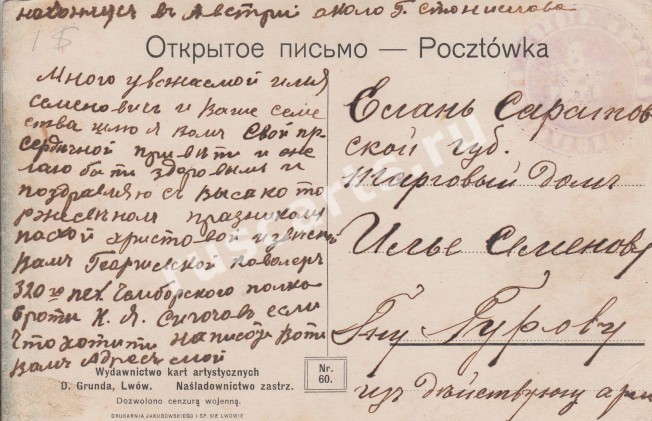 нахожусь въ Австріи около Г. Станислова
Открытое письмо — Pocztówka
Много уважаемой илия
Семеновичъ и Ваше семе
ства шлю я вамъ Свой пр
сердичной приветъ и же
лаю быти здоровыми и
поздравляю съ высако то
ржественом праздником
пасхой христовой извесн
вамъ Георгиевской коволеръ
320го пех. Чамборского полка
роти К. Я. Сигочов если
что хотити написать воти
вамъ Адресъ мой
Елань Саратов
ской губ.
Торговый Домъ
Илье Семенову
Гну Гурову
изъ действующ арм
Wydawnictwo kart artystycznych
D. Grunda, Lwów. Naśladownictwo zastrz.
Dozwolono cenzurą wojenną.
DRUKARNIA JAKUBOWSKIEGO I SP. WE LWOWIE
Nr.
60.